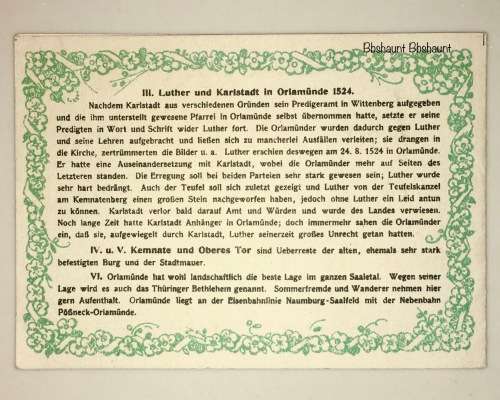 Bbshaunt Bbshaunt
III. Luther und Karlstadt in Orlamünde 1524.
Nachdem Karlstadt aus verschiedenen Gründen sein Predigeramt in Wittenberg aufgegeben
und die ihm unterstellt gewesene Pfarrei in Orlamünde selbst übernommen hatte, setzte er seine
Predigten in Wort und Schrift wider Luther fort. Die Orlamünder wurden dadurch gegen Luther
und seine Lehren aufgebracht und ließen sich zu mancherlei Ausfällen verleiten; sie drangen in
die Kirche, zertrümmerten die Bilder u. a. Luther erschien deswegen am 24. 8. 1524 in Orlamünde.
Er hatte eine Auseinandersetzung mit Karlstadt, wobei die Orlamünder mehr auf Seiten des
Letzteren standen. Die Erregung soll bei beiden Parteien sehr stark gewesen sein; Luther wurde
sehr hart bedrängt. Auch der Teufel soll sich zuletzt gezeigt und Luther von der Teufelskanzel
am Kemnatenberg einen großen Stein nachgeworfen haben, jedoch ohne Luther ein Leid antun
zu können. Karlstadt verlor bald darauf Amt und Würden und wurde des Landes verwiesen.
Noch lange Zeit hatte Karlstadt Anhänger in Orlamünde; doch immermehr sahen die Orlamünder
ein, daß sie, aufgewiegelt durch Karlstadt, Luther seinerzeit großes Unrecht getan hatten.
IV. u. V. Kemnate und Oberes Tor sind Ueberreste der alten, ehemals sehr stark
befestigten Burg und der Stadtmauer.
VI. Orlamünde hat wohl landschaftlich die beste Lage im ganzen Saaletal. Wegen seiner
Lage wird es auch das Thüringer Bethlehem genannt. Sommerfremde und Wanderer nehmen hier
gern Aufenthalt. Orlamünde liegt an der Eisenbahnlinie Naumburg-Saalfeld mit der Nebenbahn
Pößneck-Orlamünde.